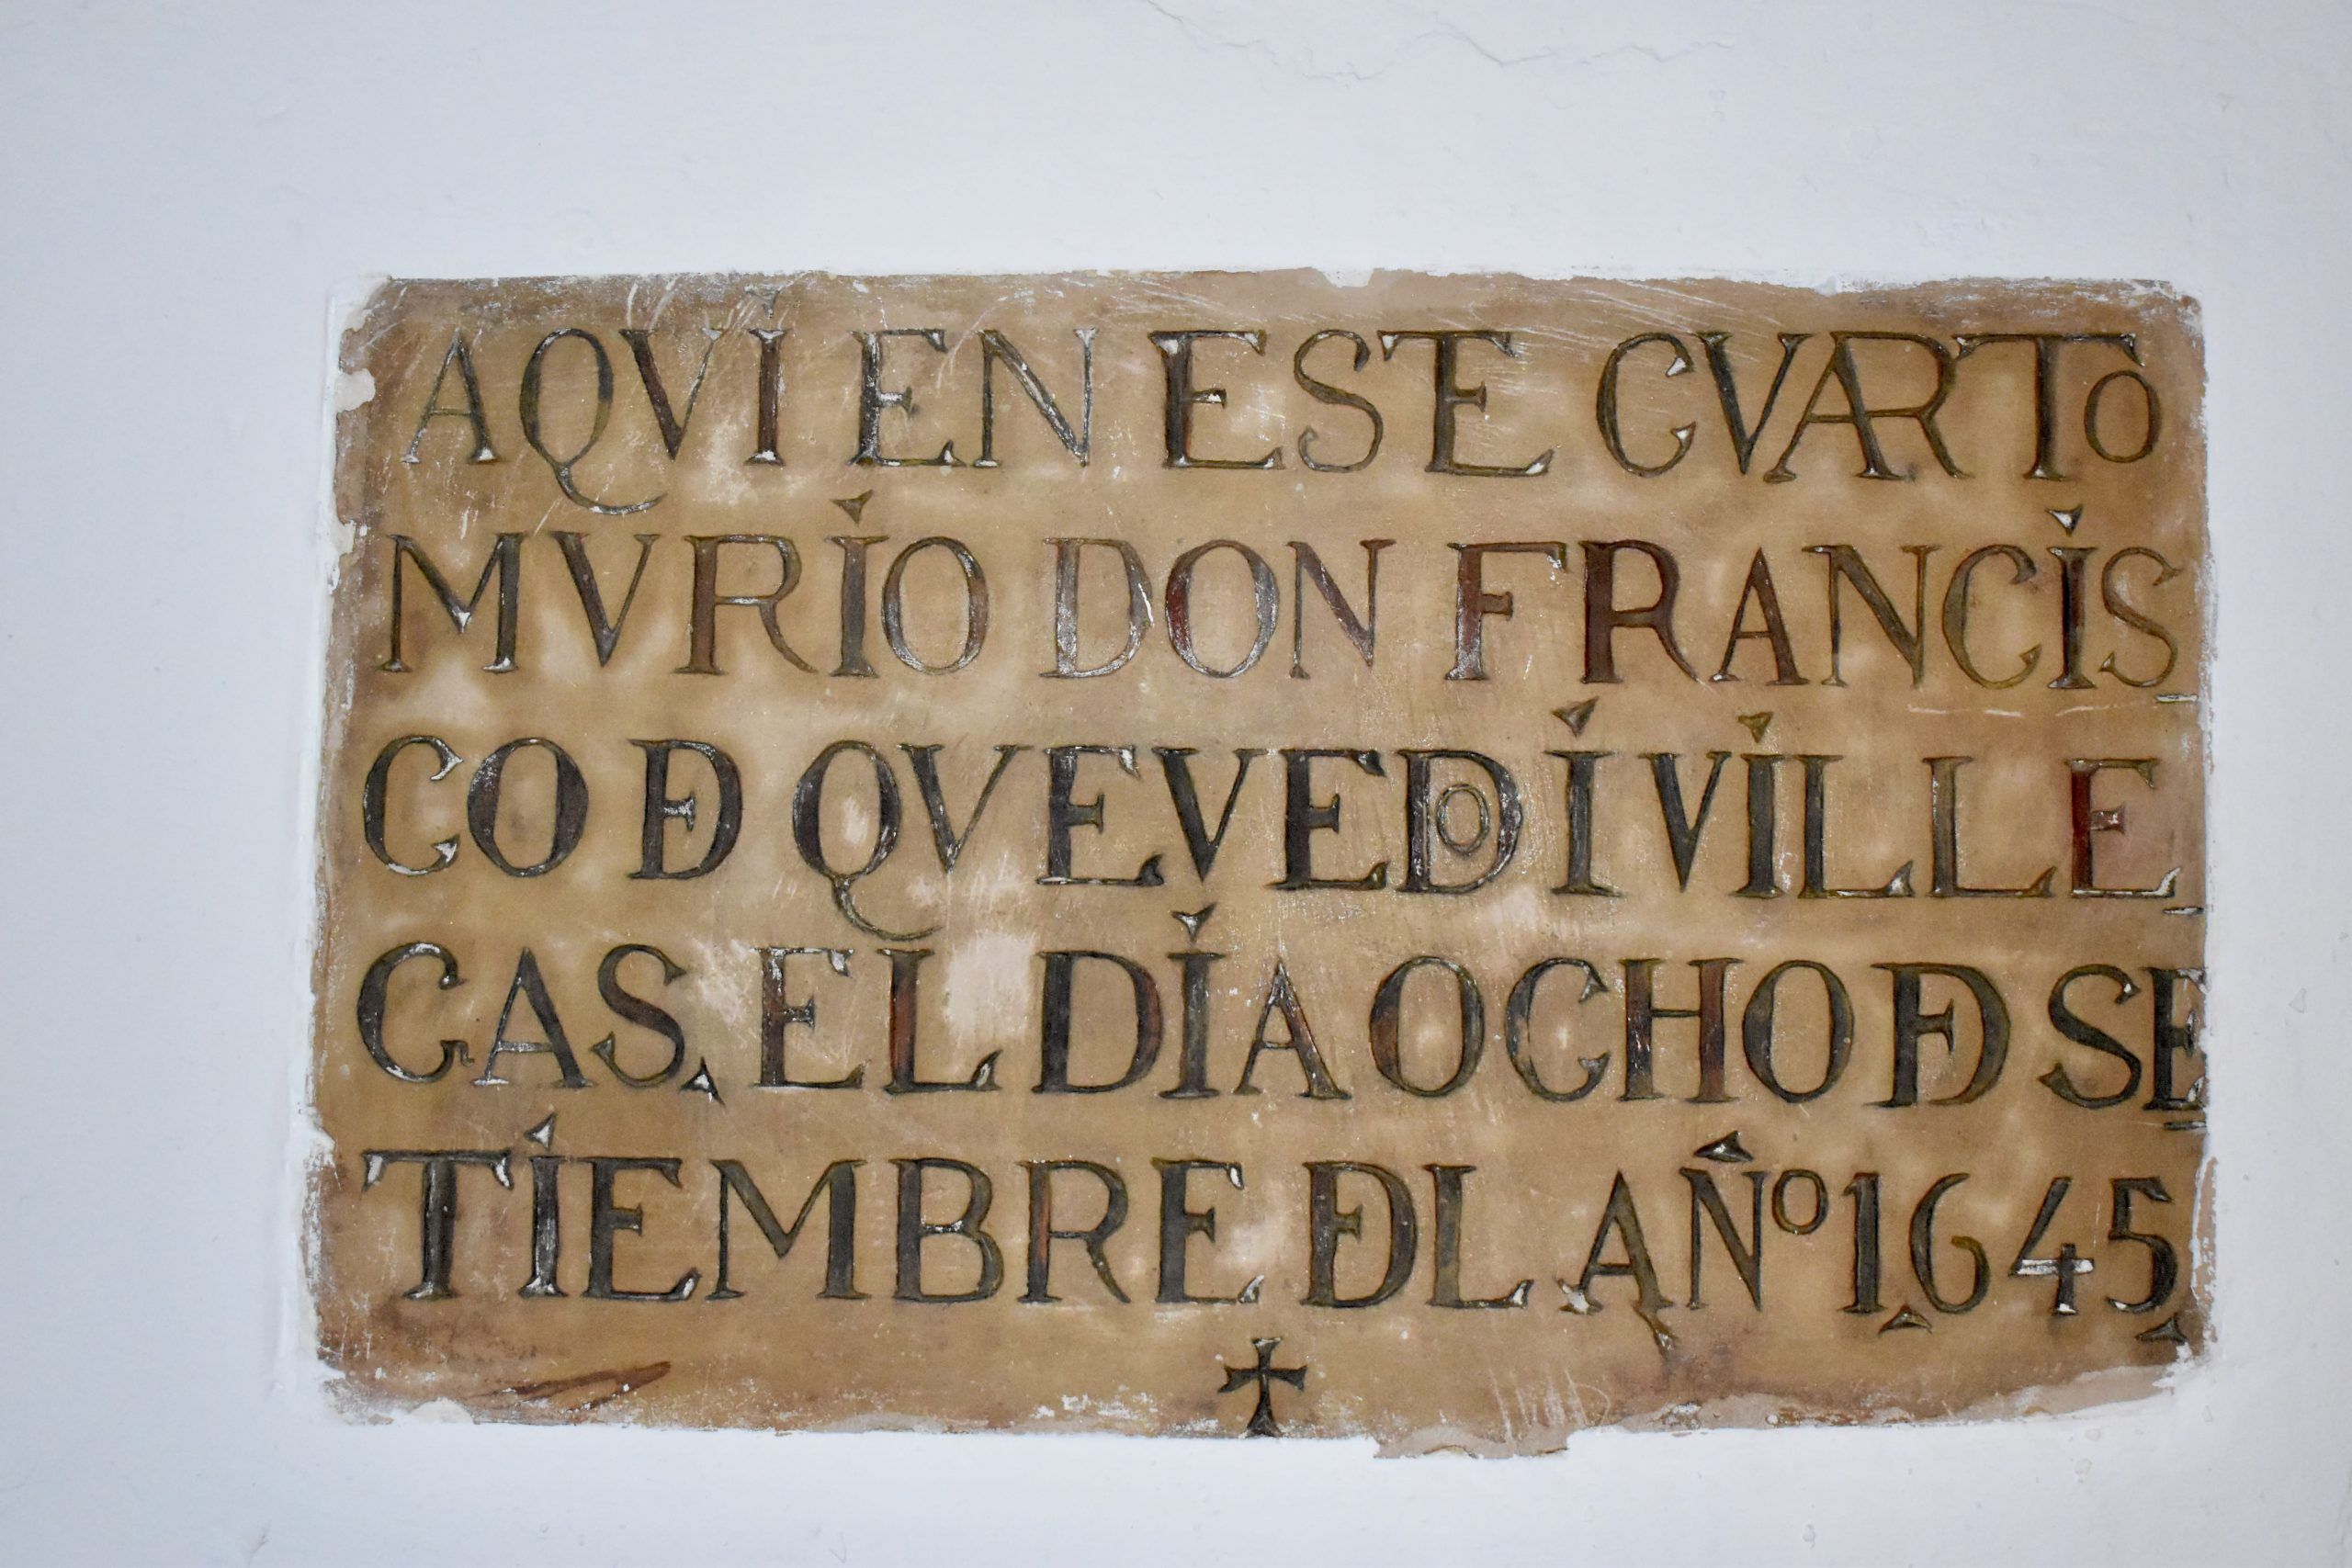 AQVI EN ESTE CVARTO
MVRIO DON FRANCIS
CO DE QVEVEDO I VILLE
GAS, EL DIA OCHO DE SE
TIEMBRE DEL AÑO 1,645,